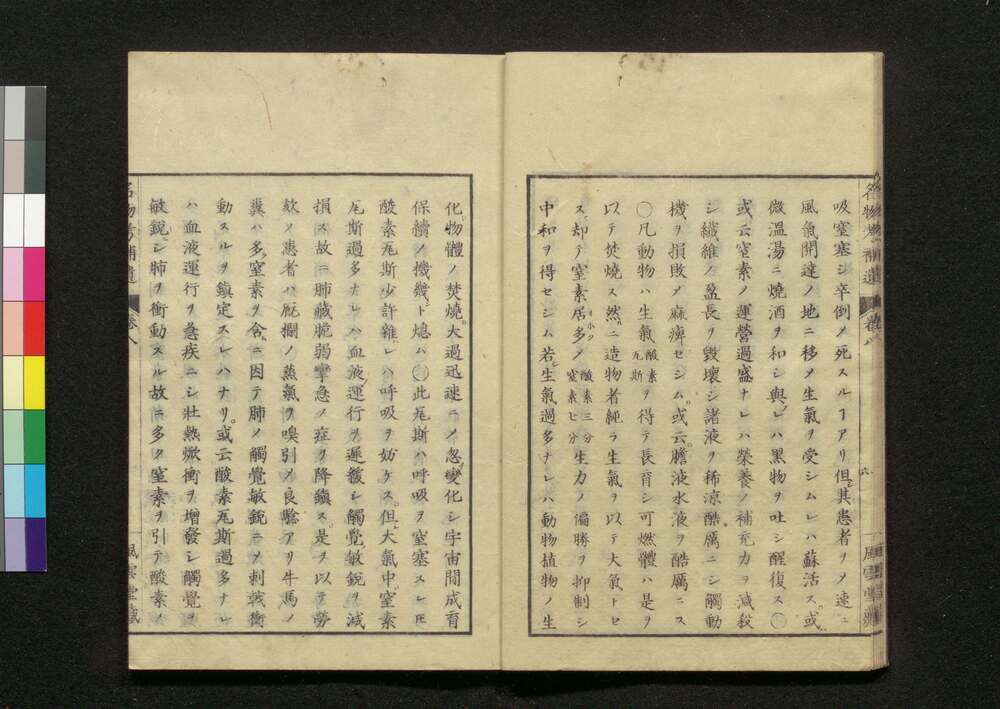 吸窒塞シ卒倒メ死スルヿアリ但其患者ヲメ速ニ
風氣開達ノ地ニ移メ生氣ヲ受シムレハ蘇活ス或
微溫湯ニ燒酒ヲ和シ與レハ黒物ヲ吐シ醒復ス〇
或云窒素ノ運營過盛ナレハ榮養ノ補充力ヲ減殺
シ纎維ノ盈長ヲ毀壞シ諸液ヲ稀涼酷厲ニシ觸動
機ヲ損敗メ麻痺セシム或云膽液水液ヲ酷厲ニス
〇凡動物ハ生氣酸素瓦斯ヲ得テ長育シ可燃體ハ是ヲ
以テ焚燒ス然ニ造物者純ラ生氣ヲ以テ大氣トセ
ス却テ窒素居多メ酸素三分窒素七分生力ノ偏勝ヲ抑制シ
中和ヲ得セシム若生氣過多ナレハ動物植物ノ生
化物體ノ焚燒大過迅速ニメ忽變化シ宇宙間成育
保續ノ機幾ト熄ハ〇此瓦斯ハ呼吸ヲ窒塞スレ𪜈
酸素瓦斯少許雜レハ呼吸ヲ妨ケス但大氣中窒素
瓦斯過多ナレハ血液運行ヲ遲緩シ觸覺敏銳ヲ減
損ス故ニ肺藏脆弱攣急ノ症ヲ降鎭ス是ヲ以テ勞
欬ノ患者ハ厩欄ノ蒸氣ヲ嗅引メ良驗アリ牛馬ノ
糞ハ多窒素ヲ含ニ因テ肺ノ觸覺敏銳ニメ刺戟衝
動スルヲ鎭定スレハナリ或云酸素瓦斯過多ナレ
ハ血液運行ヲ急疾ニシ壯熱焮衝ヲ增發シ觸覺ヲ
敏銳シ肺ヲ衝動スル故ニ多ク窒素ヲ引テ酸素ノ
名物考補遺 卷八
風雲堂藏